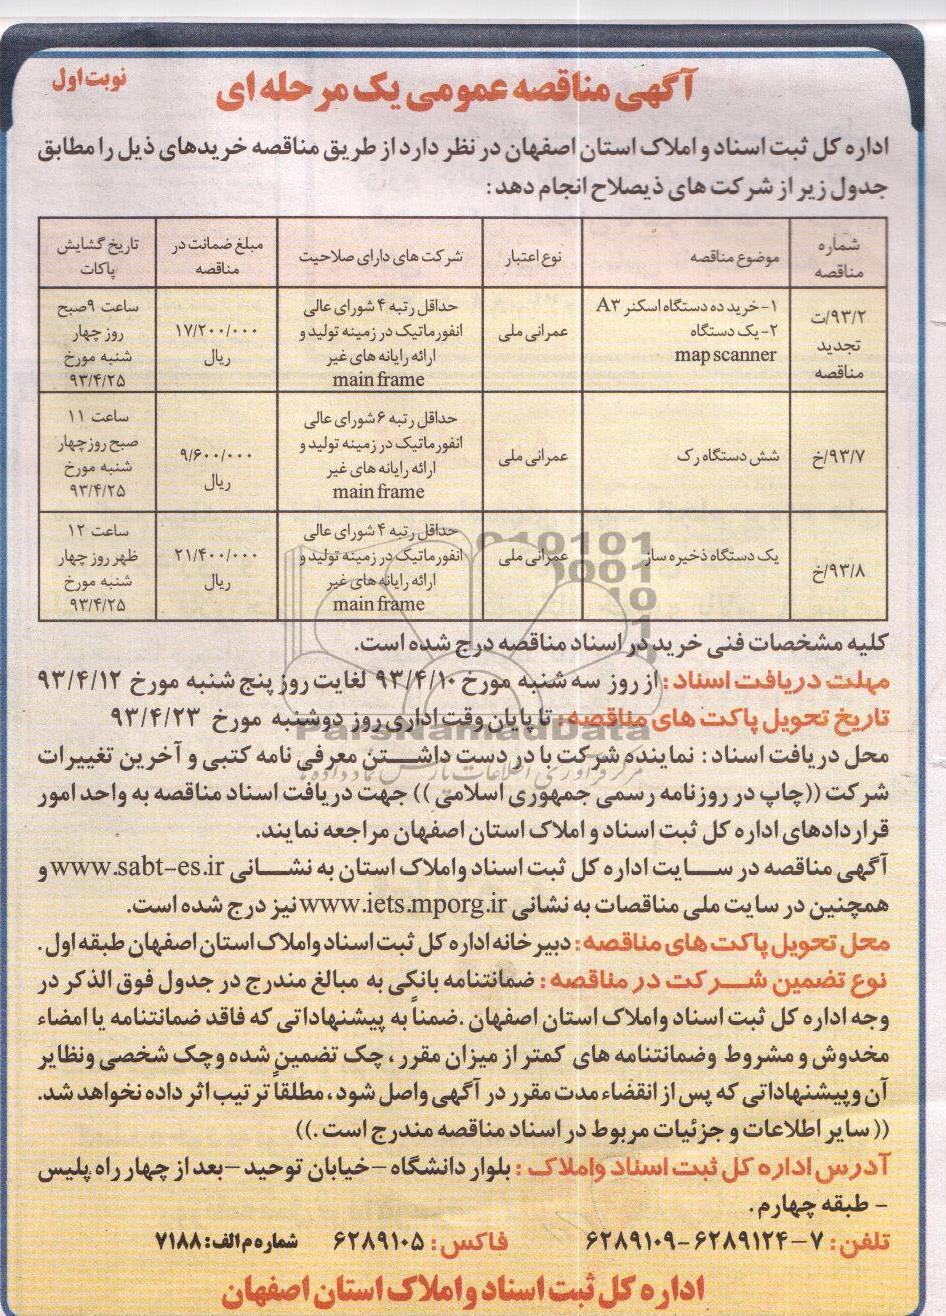 نوبت اول
آگهی مناقصه عمومی یک مرحله ای
اداره کل ثبت اسناد و املاک استان اصفهان در نظر دارد از طریق مناقصه خریدهای ذیل را مطابق
جدول زیر از شرکت های ذیصلاح انجام دهد:
شماره مناقصه	موضوع مناقصه	نوع اعتبار	شرکت های دارای صلاحیت	مبلغ ضمانت در مناقصه	تاریخ گشایش پاکات
۹۳/۲/ت تجدید مناقصه	۱- خرید ده دستگاه اسکنر A۳ ۲- یک دستگاه map scanner	عمرانی ملی	حداقل رتبه ۴ شورای عالی انفورماتیک در زمینه تولید و ارائه رایانه های غیر main frame	۱۷/۲۰۰/۰۰۰ ریال	ساعت ۹صبح روز چهار شنبه مورخ ۹۳/۴/۲۵
۹۳/۷/خ	شش دستگاه رک	عمرانی ملی	حداقل رتبه ۶ شورای عالی انفورماتیک در زمینه تولید و ارائه رایانه های غیر main frame	۹/۶۰۰/۰۰۰ ریال	ساعت ۱۱ صبح روزچهار شنبه مورخ ۹۳/۴/۲۵
۹۳/۸/خ	یک دستگاه ذخیره ساز	عمرانی ملی	حداقل رتبه ۴ شورای عالی انفورماتیک در زمینه تولید و ارائه رایانه های غیر main frame	۲۱/۴۰۰/۰۰۰ ریال	ساعت ۱۲ ظهر روز چهار شنبه مورخ ۹۳/۴/۲۵
کلیه مشخصات فنی خرید در اسناد مناقصه درج شده است.
مهلت دریافت اسناد: از روز سه شنبه مورخ ۹۳/۴/۱۰ لغایت روز پنج شنبه مورخ ۹۳/۴/۱۲
تاریخ تحویل پاکت های مناقصه: تا پایان وقت اداری روز دوشنبه مورخ ۹۳/۴/۲۳
ParsNamadData
مرکز فرآوری اطلاعات پارس نماد داده ها
محل دریافت اسناد: نماینده شرکت با در دست داشتن معرفی نامه کتبی و آخرین تغییرات
شرکت ((چاپ در روزنامه رسمی جمهوری اسلامی)) جهت دریافت اسناد مناقصه به واحد امور
قراردادهای اداره کل ثبت اسناد و املاک استان اصفهان مراجعه نمایند.
آگهی مناقصه در سایت اداره کل ثبت اسناد واملاک استان به نشانی www.sabt-es.ir و
همچنین در سایت ملی مناقصات به نشانی www.iets.mporg.ir نیز درج شده است.
محل تحویل پاکت های مناقصه: دبیرخانه اداره کل ثبت اسناد واملاک استان اصفهان طبقه اول.
نوع تضمین شرکت در مناقصه: ضمانتنامه بانکی به مبالغ مندرج در جدول فوق الذکر در
وجه اداره کل ثبت اسناد واملاک استان اصفهان .ضمناً به پیشنهاداتی که فاقد ضمانتنامه یا امضاء
مخدوش و مشروط وضمانتنامه های کمتر از میزان مقرر، چک تضمین شده وچک شخصی ونظایر
آن وپیشنهاداتی که پس از انقضاء مدت مقرر در آگهی واصل شود، مطلقاً ترتیب اثر داده نخواهد شد.
((سایر اطلاعات و جزئیات مربوط در اسناد مناقصه مندرج است.))
آدرس اداره کل ثبت اسناد واملاک: بلوار دانشگاه –خیابان توحید –بعد از چهار راه پلیس
– طبقه چهارم.
تلفن: ۷-۶۲۸۹۱۲۴-۶۲۸۹۱۰۹ فاکس: ۶۲۸۹۱۰۵ شماره م الف: ۷۱۸۸
اداره کل ثبت اسناد واملاک استان اصفهان